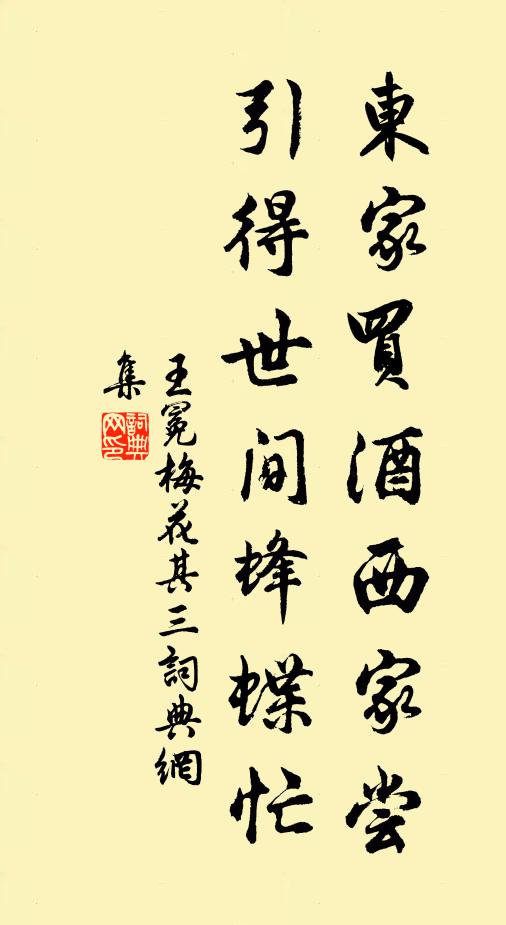 東家買酒西家嘗
引得世间蜂蝶忙
王冕梅花其三詞典網
集
詞典
网印